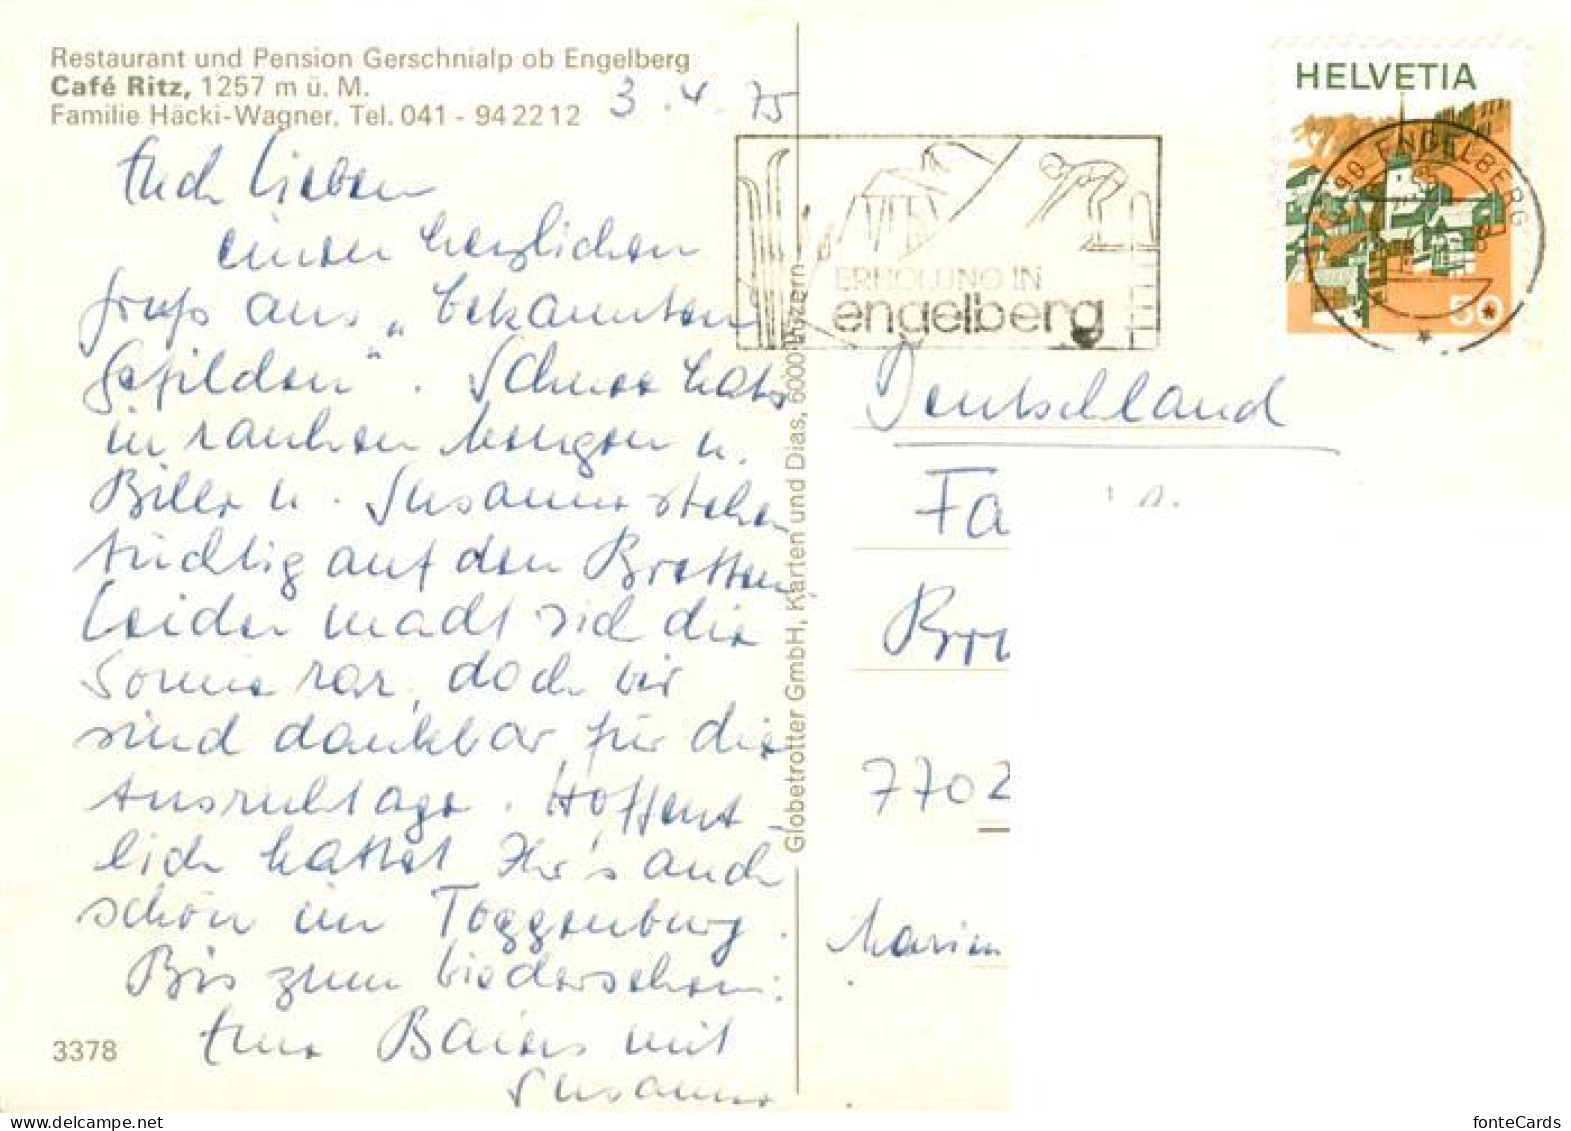 Restaurant und Pension Gerschnialp ob Engelberg
Café Ritz, 1257 m ü. M.
Familie Häcki-Wagner, Tel. 041 - 94 22 12
3.4.75
Euch Lieben
einen herzlichen
Gruß aus „bekannten
Gefilden“. Schnee hats
in rauhen Mengen u.
u. Susanne stehen
tüchtig auf den Bretten
Leider macht sich die
Sonne rar, doch wir
sind dankbar für die
Ausruhtage. Hoffent-
lich hattet Ihr's auch
schön im Toggenburg.
Bis zum Wiedersehen:
Eure Baiers mit
Susanne
3378
Globetrotter GmbH, Karten und Dias, 6000 Luzern
ERHOLUNG IN
engelberg
HELVETIA
50
90 ENGELBERG
Deutschland
Fa
7702
fonteCards